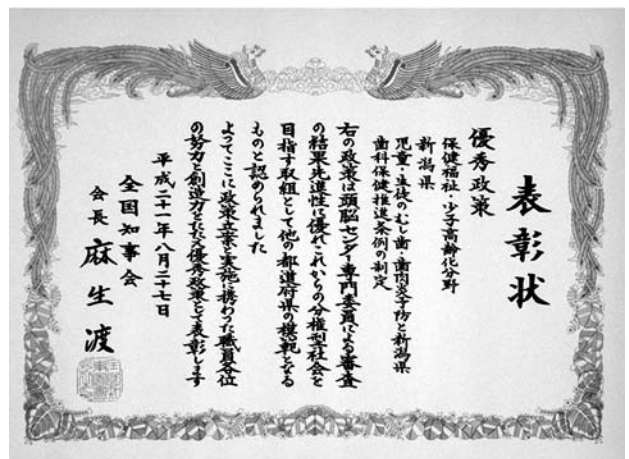 表彰状
優秀政策
保健福祉・少子高齢化分野
新潟県
児童・生徒のむし歯・歯肉炎予防と新潟県
歯科保健推進条例の制定
右の政策は頭脳センター専門委員による審査
の結果先進性に優れこれからの分権型社会を
目指す取組として他の都道府県の模範となる
ものと認められました
よってここに政策立案・実施に携わった職員各位
の努力と創造力をたたえ優秀政策として表彰します
平成二十一年八月二十七日
全国知事会
会長 麻生渡